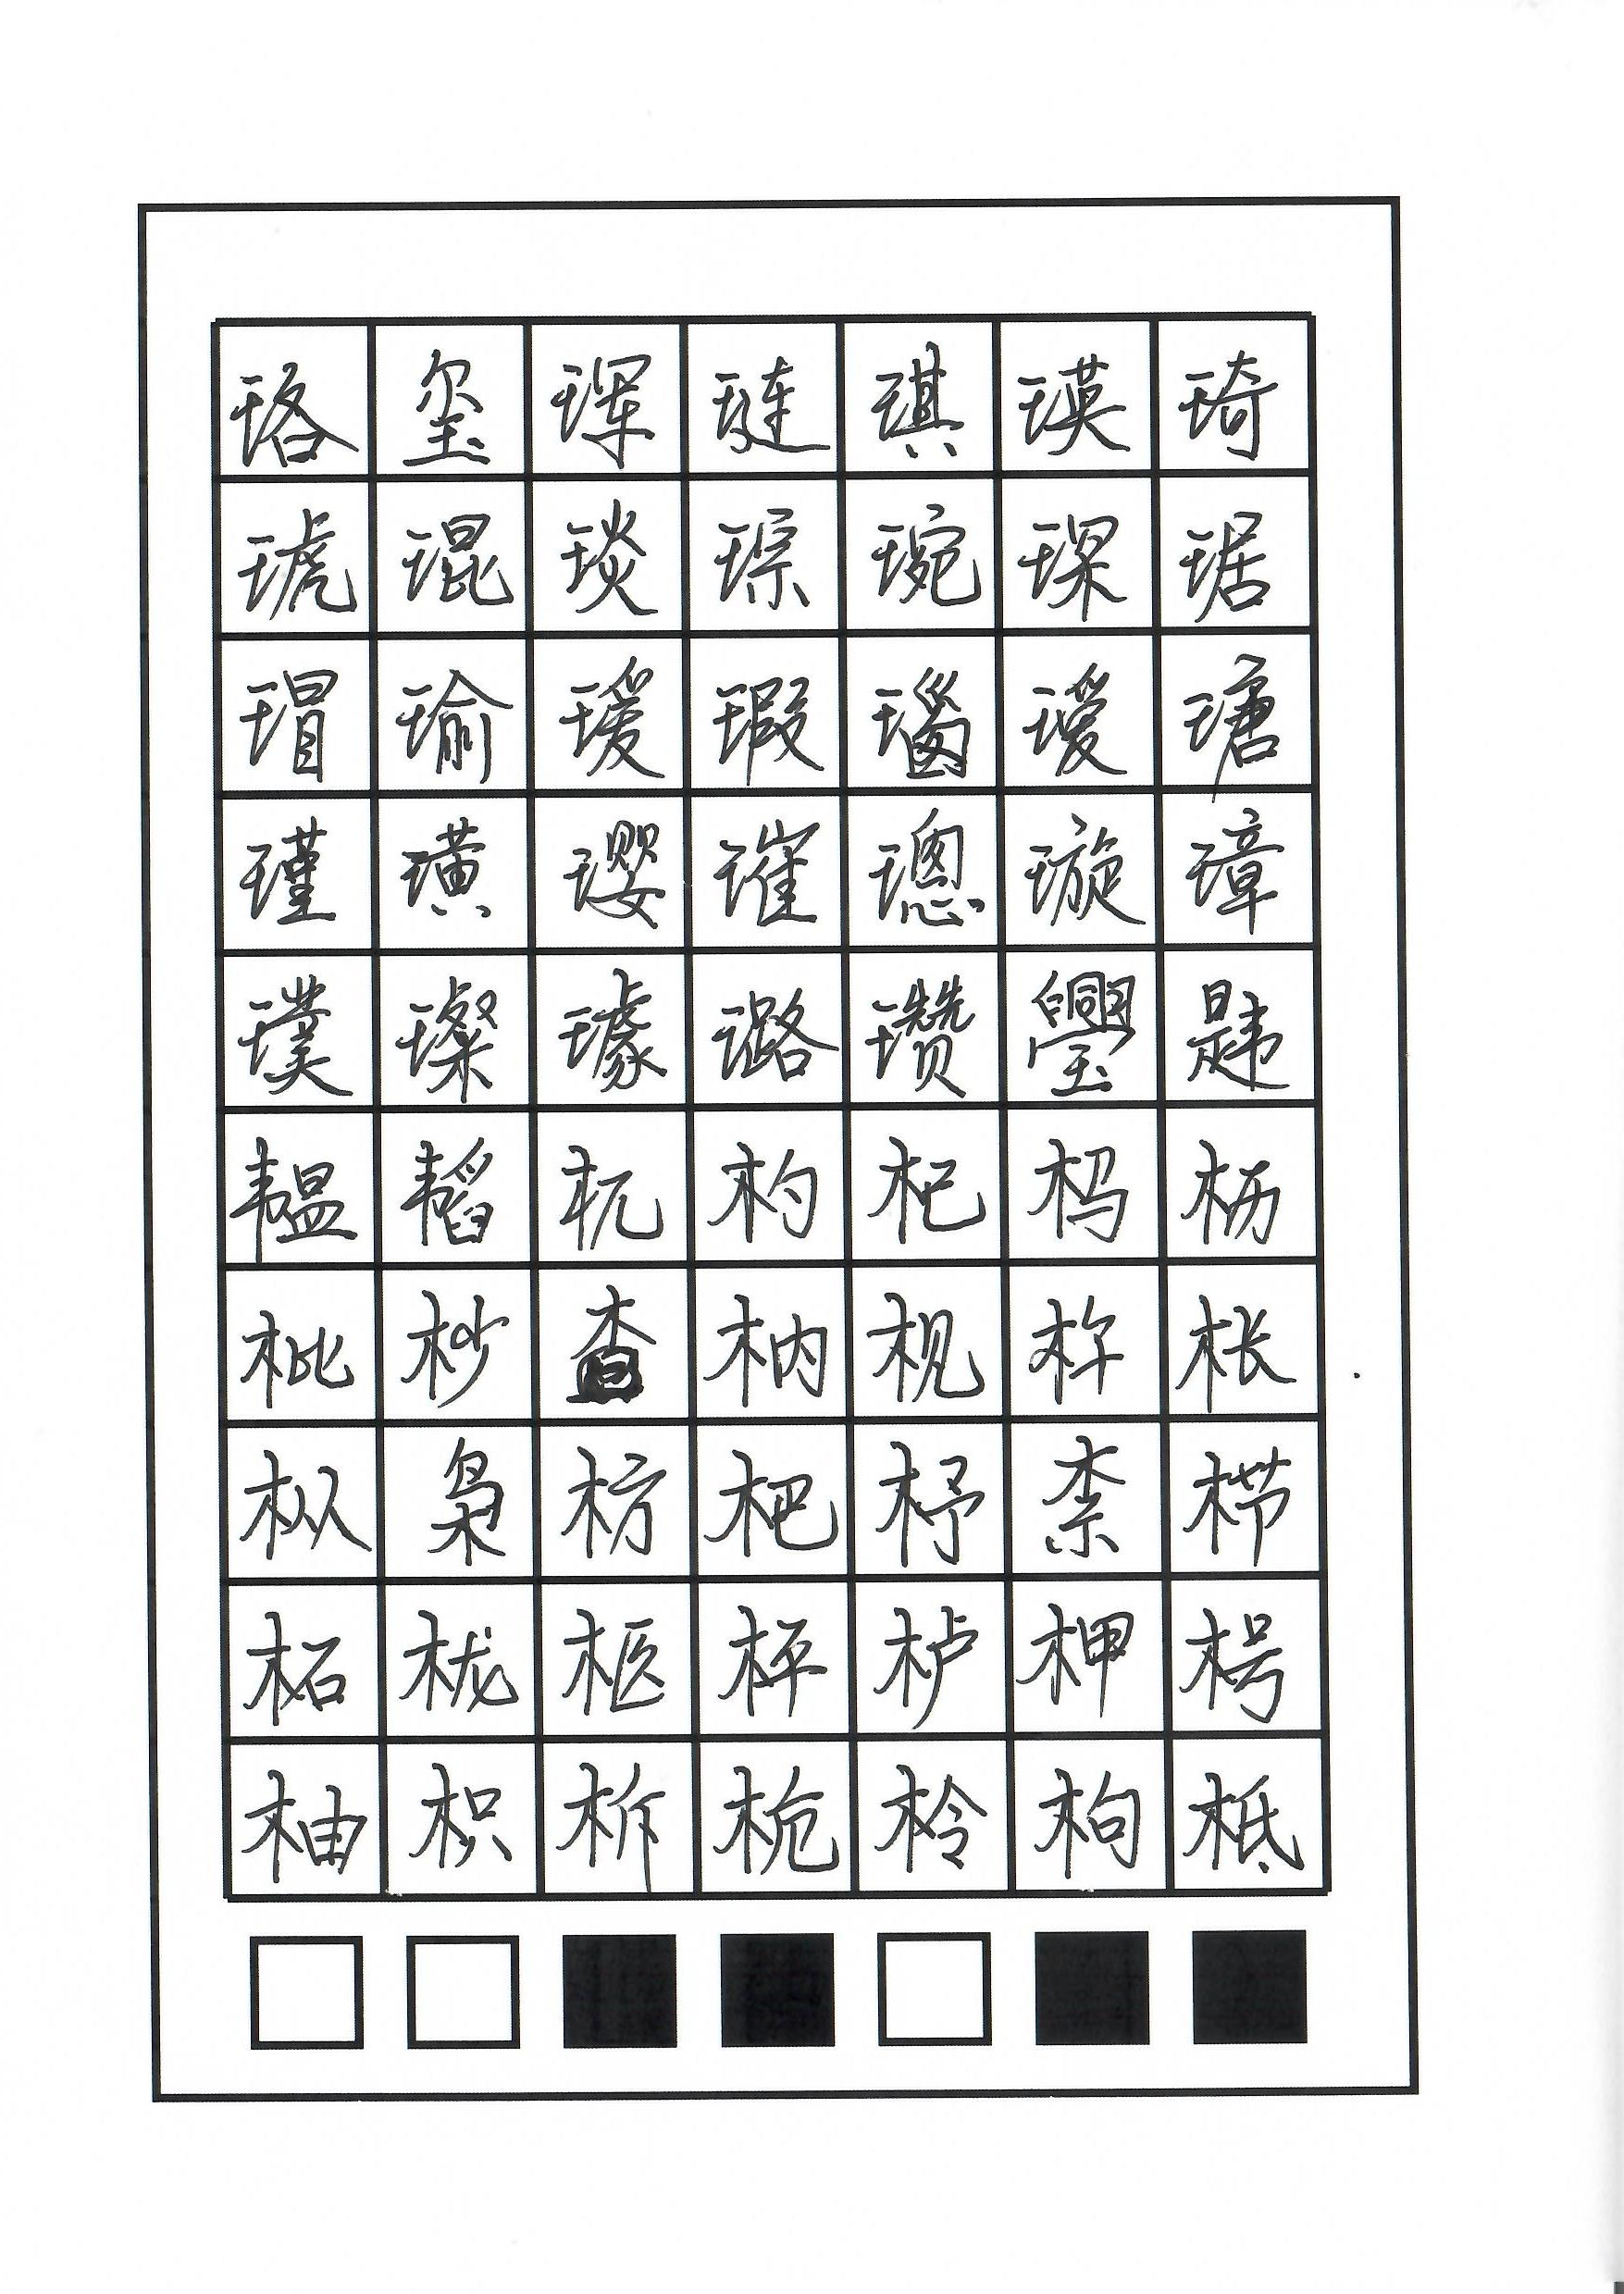 珞玺珲琏琪瑛琦
琥琨琰琮琬琛琚
瑁瑜瑗瑕瑙瑷瑭
瑾璜璎璀璁璇璋
璞璨璩璐瓒璺韪
韫韬杌杓杞杩枥
枇杪杳枘枧杵枨
枞枭枋杷杼柰栉
柘栊柩枰栌柙枵
柚枳柝栀柃枸柢